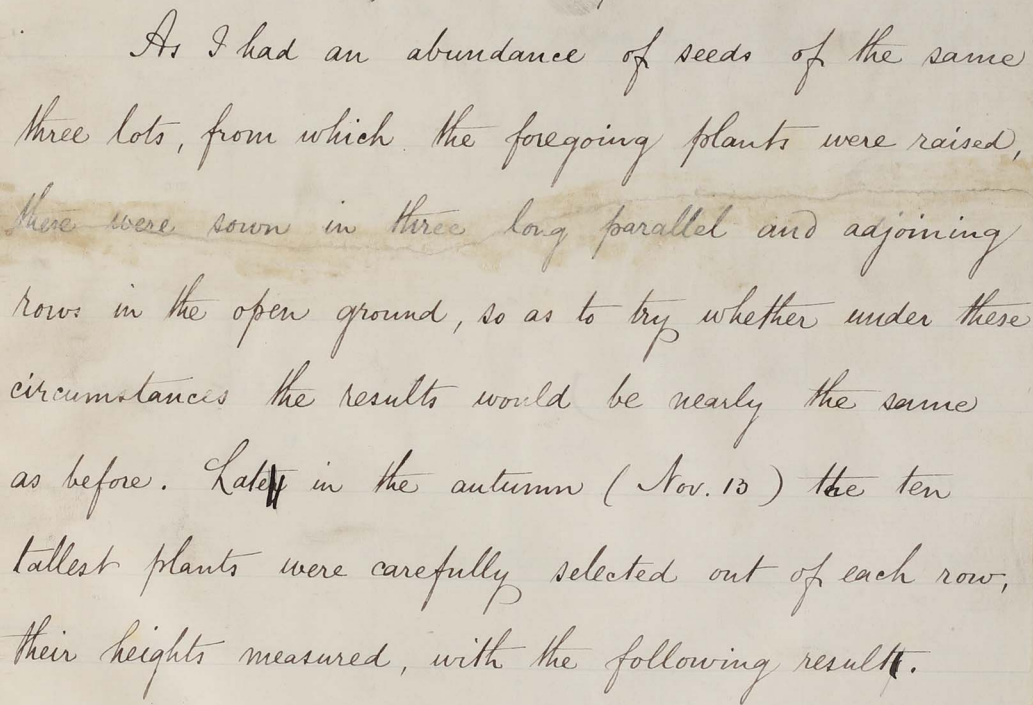 As I had an abundance of seeds of the same
three lots, from which the foregoing plants were raised,
there were sown in three long parallel and adjoining
rows in the open ground, so as to try whether under these
circumstances the results would be nearly the same
as before. Late in the autumn (Nov. 13) the ten
tallest plants were carefully selected out of each row,
their heights measured, with the following result.